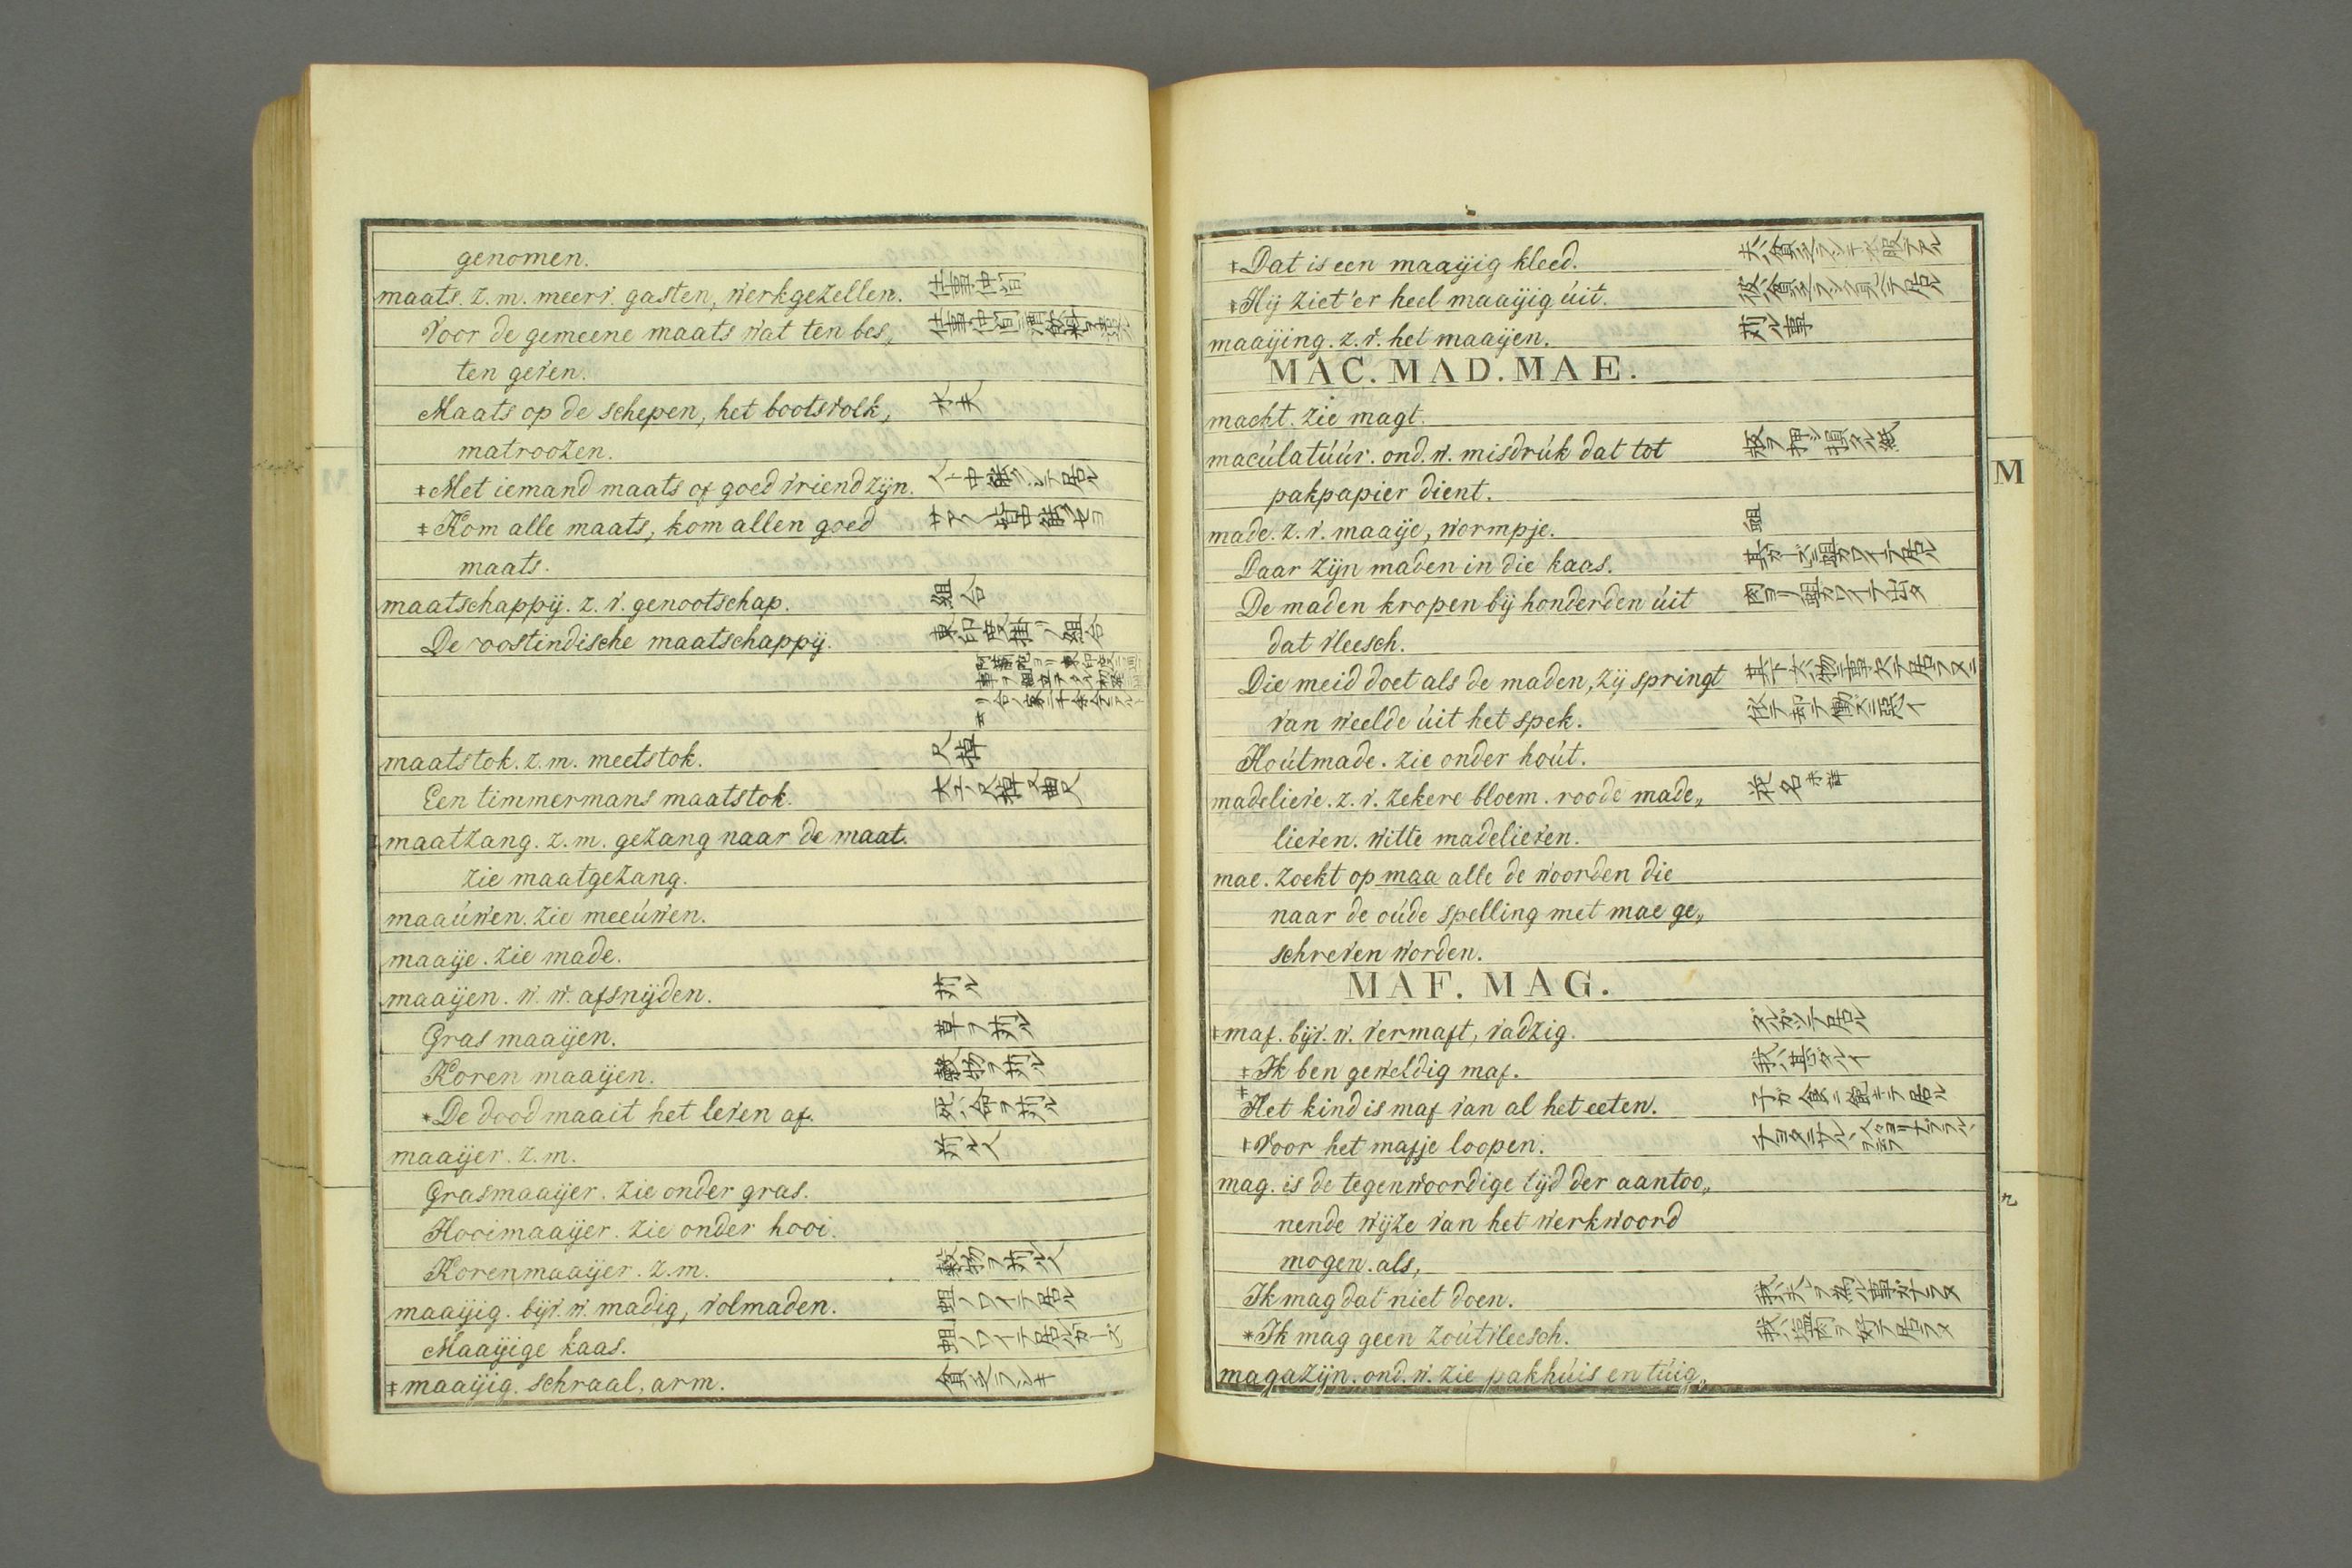 genomen.
maats. z. m. meerv. gasten, werkgezellen. 仕事仲間
Voor de gemeene maats wat ten bes„ 仕事仲間ニ酒飲料ヲ
ten geven.
Maats op de schepen, het bootsvolk, 水夫
matroozen.
‡Met iemand maats of goed vriend zijn. 人ト中能クシテ居ル
‡Kom alle maats, kom allen goed サア人皆中能クセヨ
maats.
maatschappij. z. v. genootschap. 組合
De oostindische maatschappij. 東印度掛リノ組合
maatstok. z. m. meetstok. 尺棹
Een timmermans maatstok. 大工ノ尺棹又曲尺
‡maatzang. z. m. gezang naar de maat.
zie maatgezang.
maaúwen. zie meeúwen.
maaije. zie made.
maaijen. w. w. afsnijden. 刈ル
Gras maaijen. 草ヲ刈ル
Koren maaijen. 穀物ヲ刈ル
*De dood maait het leven af. 死ハ命ヲ刈ル
maaijer. z. m. 刈ル人
Grasmaaijer. zie onder gras.
Hooimaaijer. zie onder hooi.
Korenmaaijer. z. m. 穀物ヲ刈ル人
maaijig. bijv. w. madig, vol maden. 蛆ノワイテ居ル
Maaijige kaas. 蛆ノワイテ居ルカース
‡maaijig. schraal, arm. 貧乏ラシキ
‡Dat is een maaijig kleed. 夫ハ貧乏ラシキ衣服テアル
‡Hij ziet 'er heel maaijig úit. 彼ハ貧乏ラシク見ヘテ居ル
maaijing. z. v. het maaijen. 刈ル事
MAC. MAD. MAE.
macht. zie magt.
macúlatúúr. ond. w. misdrúk dat tot 板ヲ押シ損シタル紙
pakpapier dient.
made. z. v. maaije, wormpje. 蛆
Daar zijn maden in die kaas. 其カースニ蛆カワイテ居ル
De maden kropen bij honderden úit 肉ヨリ蛆カワイテ出タ
dat vleesch.
Die meid doet als de maden, zij springt
van weelde úit het spek.
Hoútmade. zie onder hoút.
madelieve. z. v. zekere bloem. roode made„ 花名
lieven. witte madelieven.
mae. zoekt op maa alle de woorden die
naar de oúde spelling met mae ge„
schreven worden.
MAF. MAG.
‡maf. bijv. w. vermaft, vadzig. ダルガツテ居ル
‡Ik ben geweldig maf. 我ハ甚タダルイ
‡Het kind is maf van al het eeten. 子ガ食ニ飽キテ居ル
‡Voor het mafje loopen.
mag. is de tegenwoordige tijd der aantoo„
nende wijze van het werkwoord
mogen. als,
Ik mag dat niet doen. 我ハ夫ヲ為ル事ガナラヌ
*Ik mag geen zoútvleesch. 我ハ塩肉ヲ好テ居ラヌ
magazijn. ond. w. zie pakhúis en túig„
M